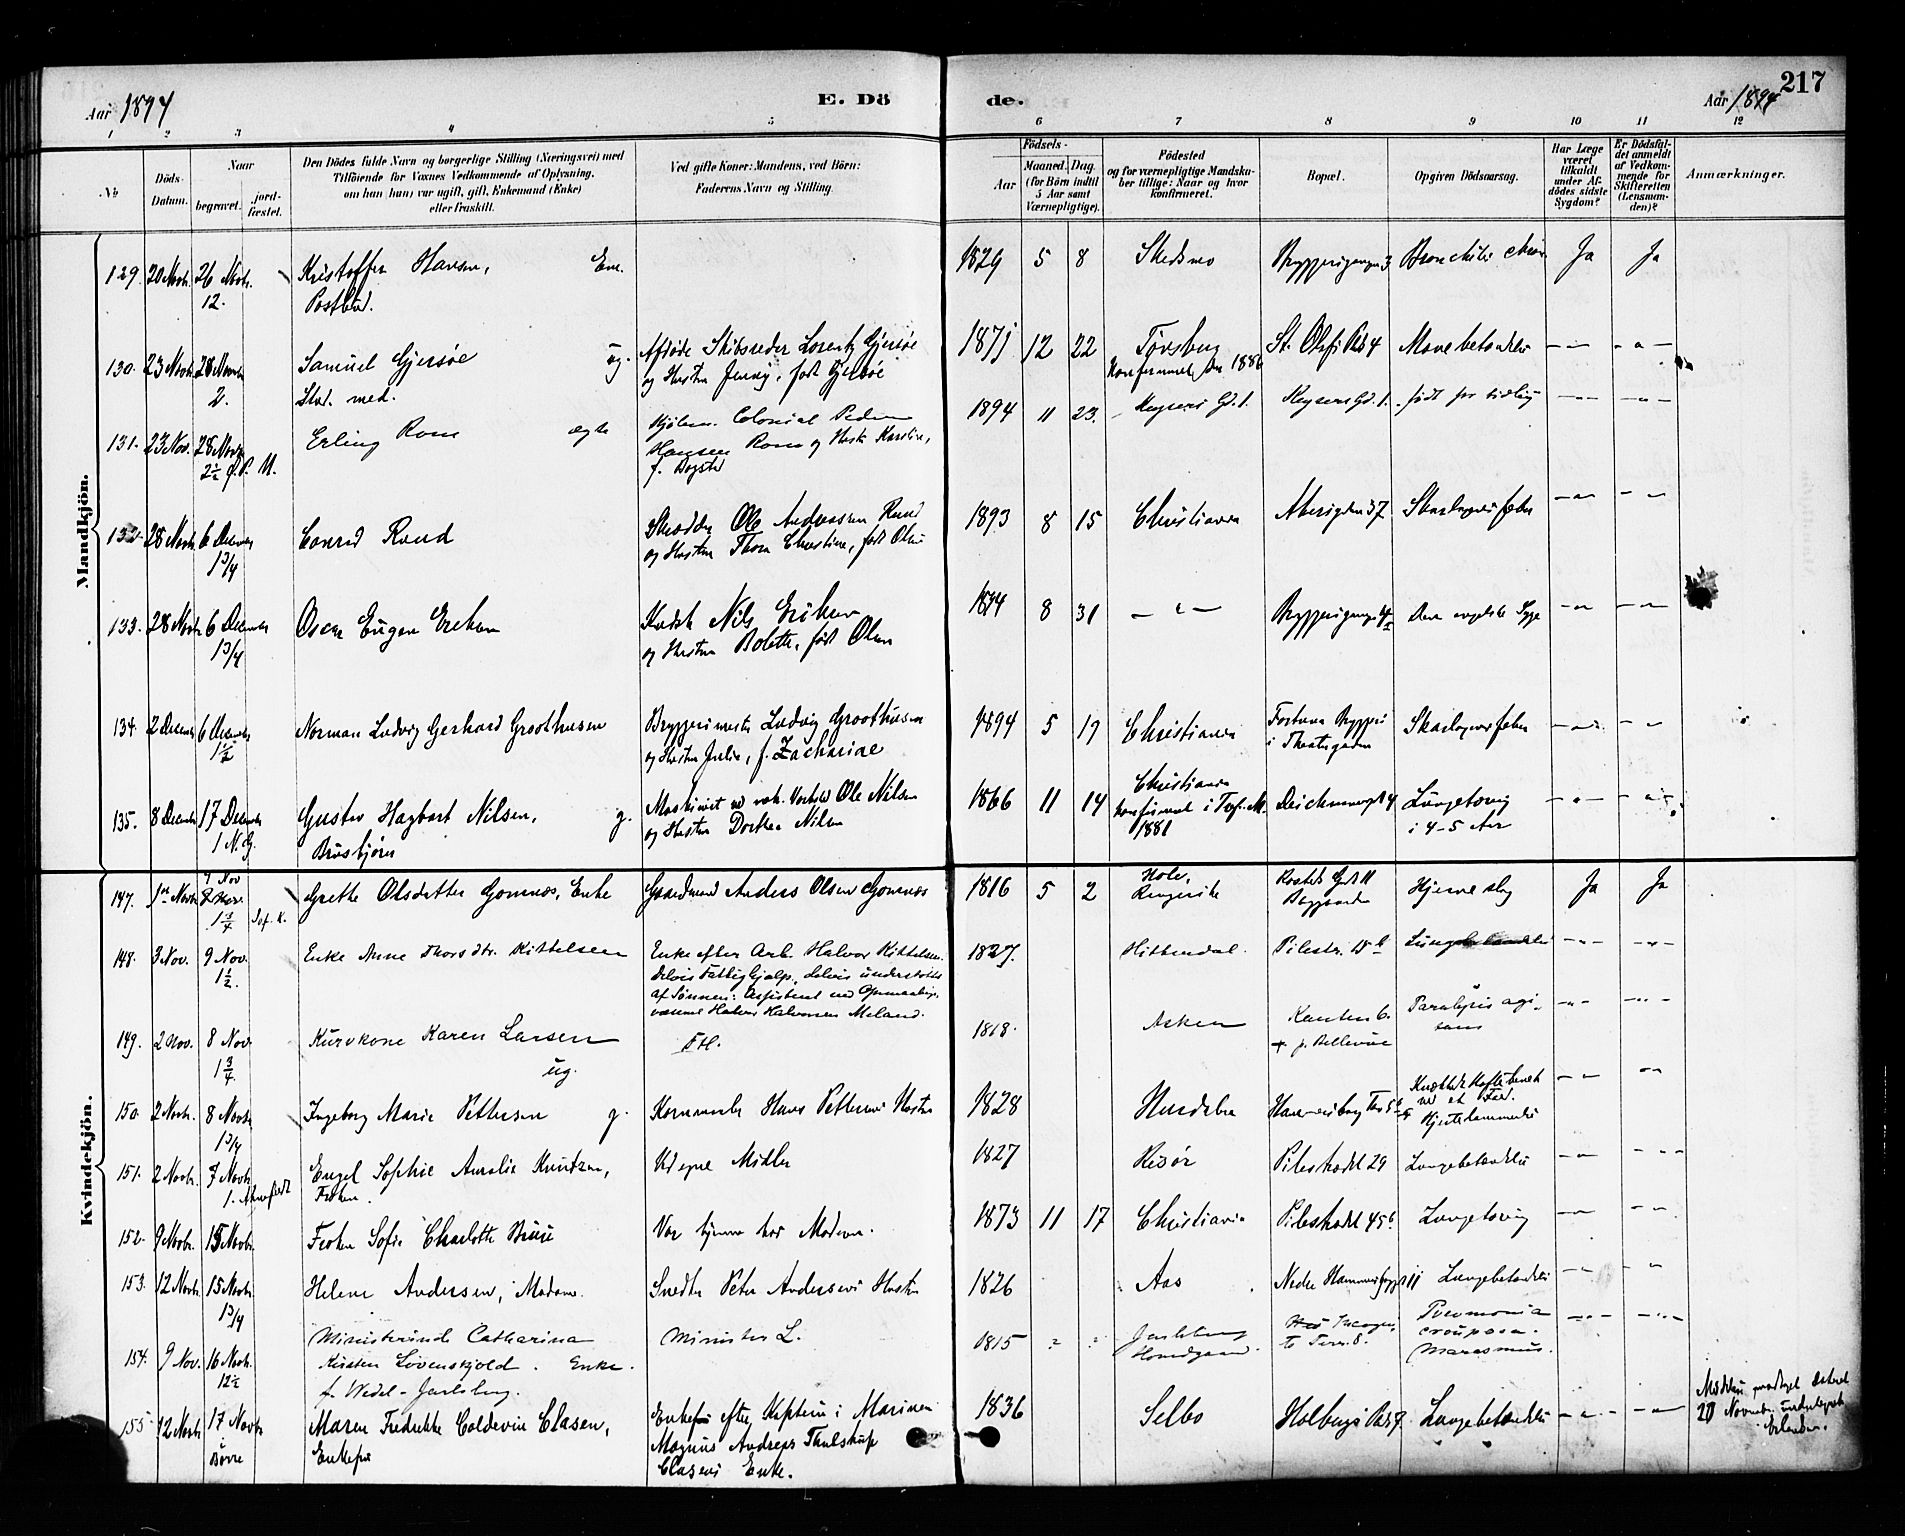 217
Aar 1894 E. Dö de. Aar 1894
1 2 3 4 5 6 7 8 9 10 11 12
No
Döds-Datum.
Naar
begravet.
jordfæstet.
Den Dödes fulde Navn og borgerlige Stilling (Næringsvei) med
Tilföiende for Voxnes Vedkommende af Oplysning,
om han (hun) var ugift, gift, Enkemand (Enke)
eller fraskilt.
Ved gifte Koner: Mandens, ved Börn:
Faderens Navn og Stilling.
Födsels-
Aar
Maaned. Dag.
(for Börn indtil
5 Aar samt
Værnepligtige).
Födested
og for værnepligtige Mandska-
ber tillige: Naar og hvor
konfirmeret.
Bopæl.
Opgiven Dödsaarsag.
Har Læge
været
tilkaldt
under Af-
dödes sidste
Sygdom?
Er Dödsfal-
det anmeldt
af Vedkom-
mende for
Skifteretten
(Lensman-
den)?
Anmærkninger.
Mandkjön.
129. 20 Novbr. 26 Novbr. Kristoffer Hansen, Em. 1829 5 8 Skedsmo Bryggerigangen 3 Bronchitis chron Ja Ja
12. Postbud.
130. 23 Novbr. 28 Novbr. Samuel Gjersøe ug. Afdøde Skibsreder Lorentz Gjersøe 1871 12 22 Tønsberg St. Olafs Pl. 4 Mavebetændelse - " - - " -
2. Stud. med. og Hustru Jenny, født Gjersøe Konfirmeret 1886
131. 23 Nov. 28 Novbr. Erling Rom ægte Kjøbm. Colonial Peder 1894 11 23. Keysers Gd. 1. Keysers Gd. 1. født for tidlig - " - - " -
2½ Hansen Rom og Hustr. Karoline,
f. Bogstad
132. 28 Novbr. 6 December Conrad Ruud Skrædder Ole Andreassen Ruud 1893 8 15 Christiania Akersgaden 37 Skarlagensfeber - " - - " -
1¾ og Hustru Thora Christine, født Olsen
133. 28 Novbr. 6 December Oscar Eugen Eriksen Kudsk Nils Eriksen 1894 8 31 - " - Bryggerigangen 4 Den engelske Syge - " - - " -
1¾ og Hustru Bolette, født Olsen
134. 2 December 6 December Norman Ludvig Gerhard Groothusen Bryggerimester Ludvig Groothusen 1894 5 19 Christiania Fortuna Bryggeri Skarlagensfeber - " - - " -
1½ og Hustru Julie, f. Zachariae i Theatergaden
135. 8 December 17 December Gustav Hagbart Nilsen, g. Maskinist Ole Nilsen 1866 11 14 Christiania Deichmansgt 4 Lungetæring - " - - " -
1 N. G. og Hustru Dorthea Nilsen konfirmeret i Tref. M. i 4-5 Aar
1881
Kvindekjön.
147. 1ste Novbr. 7 Nov Grethe Olsdatter Gomnæs, Enke Gaardmand Anders Olsen Gomnæs 1816 5 2 Hole, Rosteds Gade 11 Hjerneslag Ja Ja
1¾ Jof. K. Ringerike Baggaarden
148. 3 Nov. 9 Nov. Enke Anne Thorsdtr. Kittelsen Enke efter Arb. Halvor Kittelsen. 1827. Hitterdal. Pilestr. 15 b Lungebetændelse - " - - " -
1½. delvis Fattighjælp, delvis understøttet
af Sønnen: Assistent ved Opmaalings
væsenet Halvor Halvorsen Meland.
149. 2 Nov. 8 Nov. Kurvkone Karen Larsen F.H. 1818. Asker Kanten 6. Paralysis agi- - " - - " -
1¾. ug. p. Bellevue tans
150. 2 Novbr. 8 Novbr. Ingeborg Marie Pettersen g. Hans Pettersens Hustru 1828 Hurdalen Knækkede Hofteben - " - - " -
1¾ ved et Fald. Hjertelammelse
151. 2 Novbr. 7 Novbr. Engel Sophie Amalie Knudsen, Ved egne Midler 1827 Risør Pilestrædet 29 Lungebetændelse - " - - " -
1. Frøken.
152. 9 Novbr. 15 Novbr. Frøken Sofie Charlotte Bruse Var hjemme hos Moderen. 1873 11 17 Christiania Pilestrædet 45 b Lungetæring - " - - " -
153. 12 Novbr. 15 Novbr. Helene Andersen, Madame. Snedker Peter Andersens Hustru 1826 Aas Nedre Hammersborggt 11 Lungebetændelse - " - - " -
1¾
154. 9 Nov. 16 Novbr. Ministerinde Catharina Minister L. 1815 " " Jarlsberg Incogni- Pneumonia - " - - " -
12½ Kirsten Løvenskjold. Enke. Hovedgaard to Terr. 8. crouposa.
f. Wedel-Jarlsberg. Marasmus.
155 12 Novbr. 17 Novbr. Maren Fredrikke Coldevin Clasen, Enkefru efter Kaptein i Marinen 1836 Selbo Holbergs Pl. 7 Lungebetændelse - " - - " -
Børre Enkefru Magnus Andreas Thulstrup
Clasens Enke.
20 Novbr.